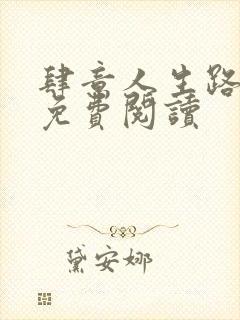 肆意人生路
免費閱讀
黛安娜